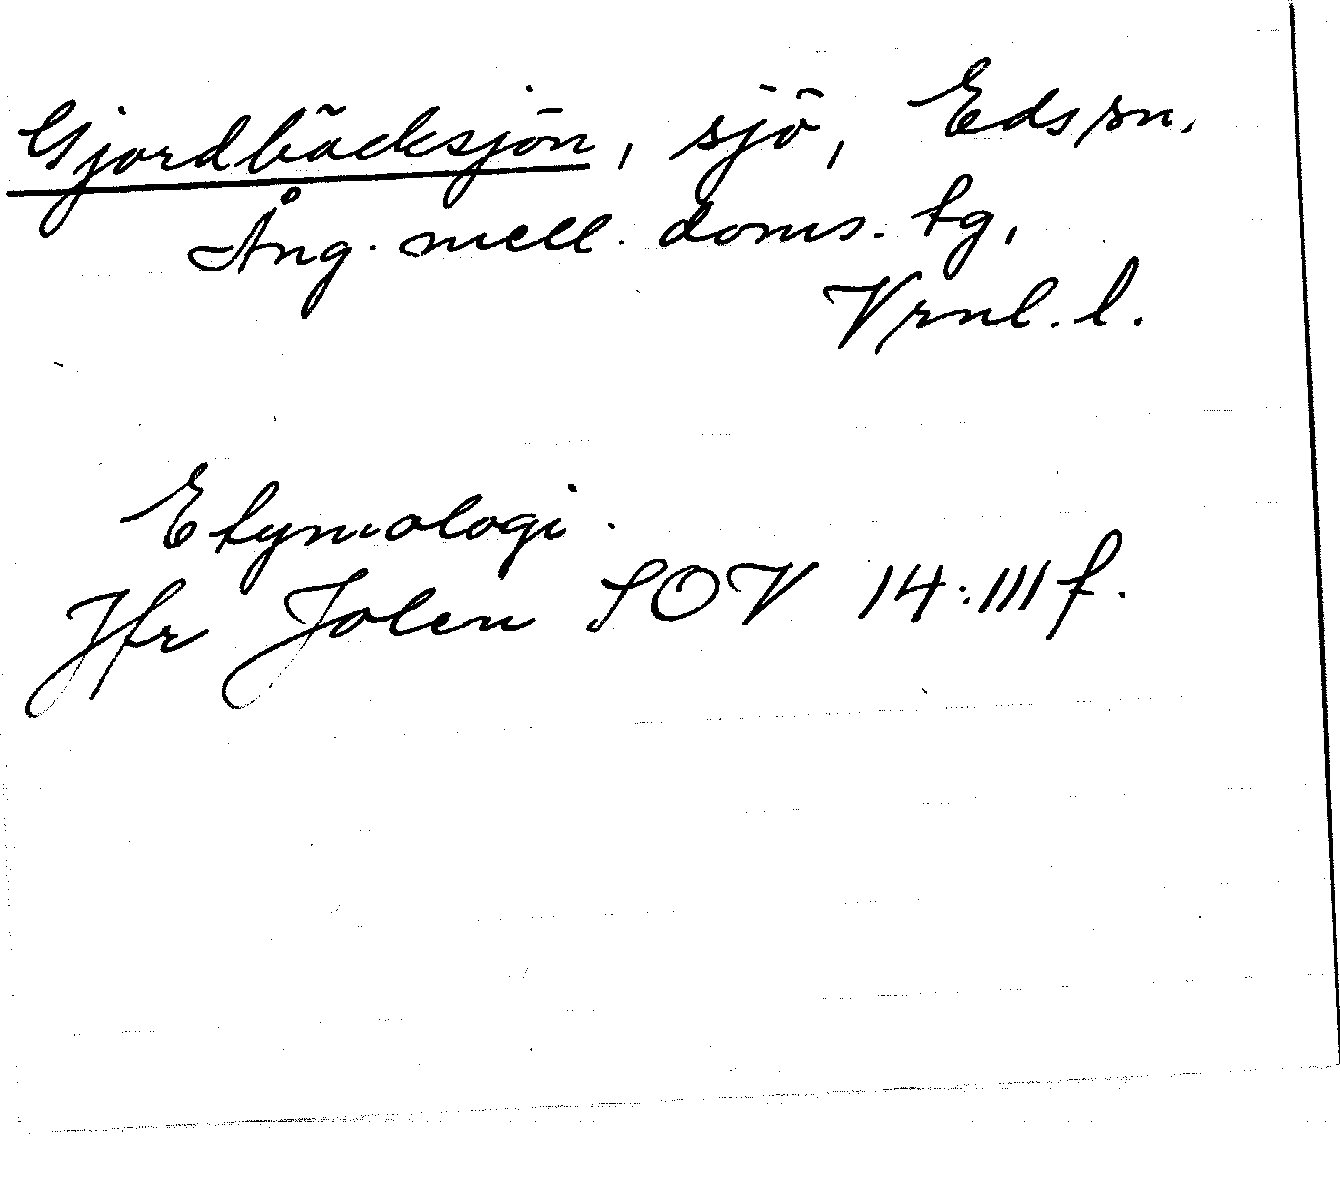 Gjordbäcksjön, sjö, Eds sn,
Ång. mell. doms. tg,
Vrnl. l.
Etymologi.
Jfr Jolen SOV 14:111 f.